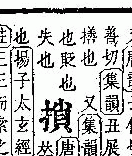 善切集韻丑展
也又集韻
也取也
失也
損
唐
也揚子太玄經